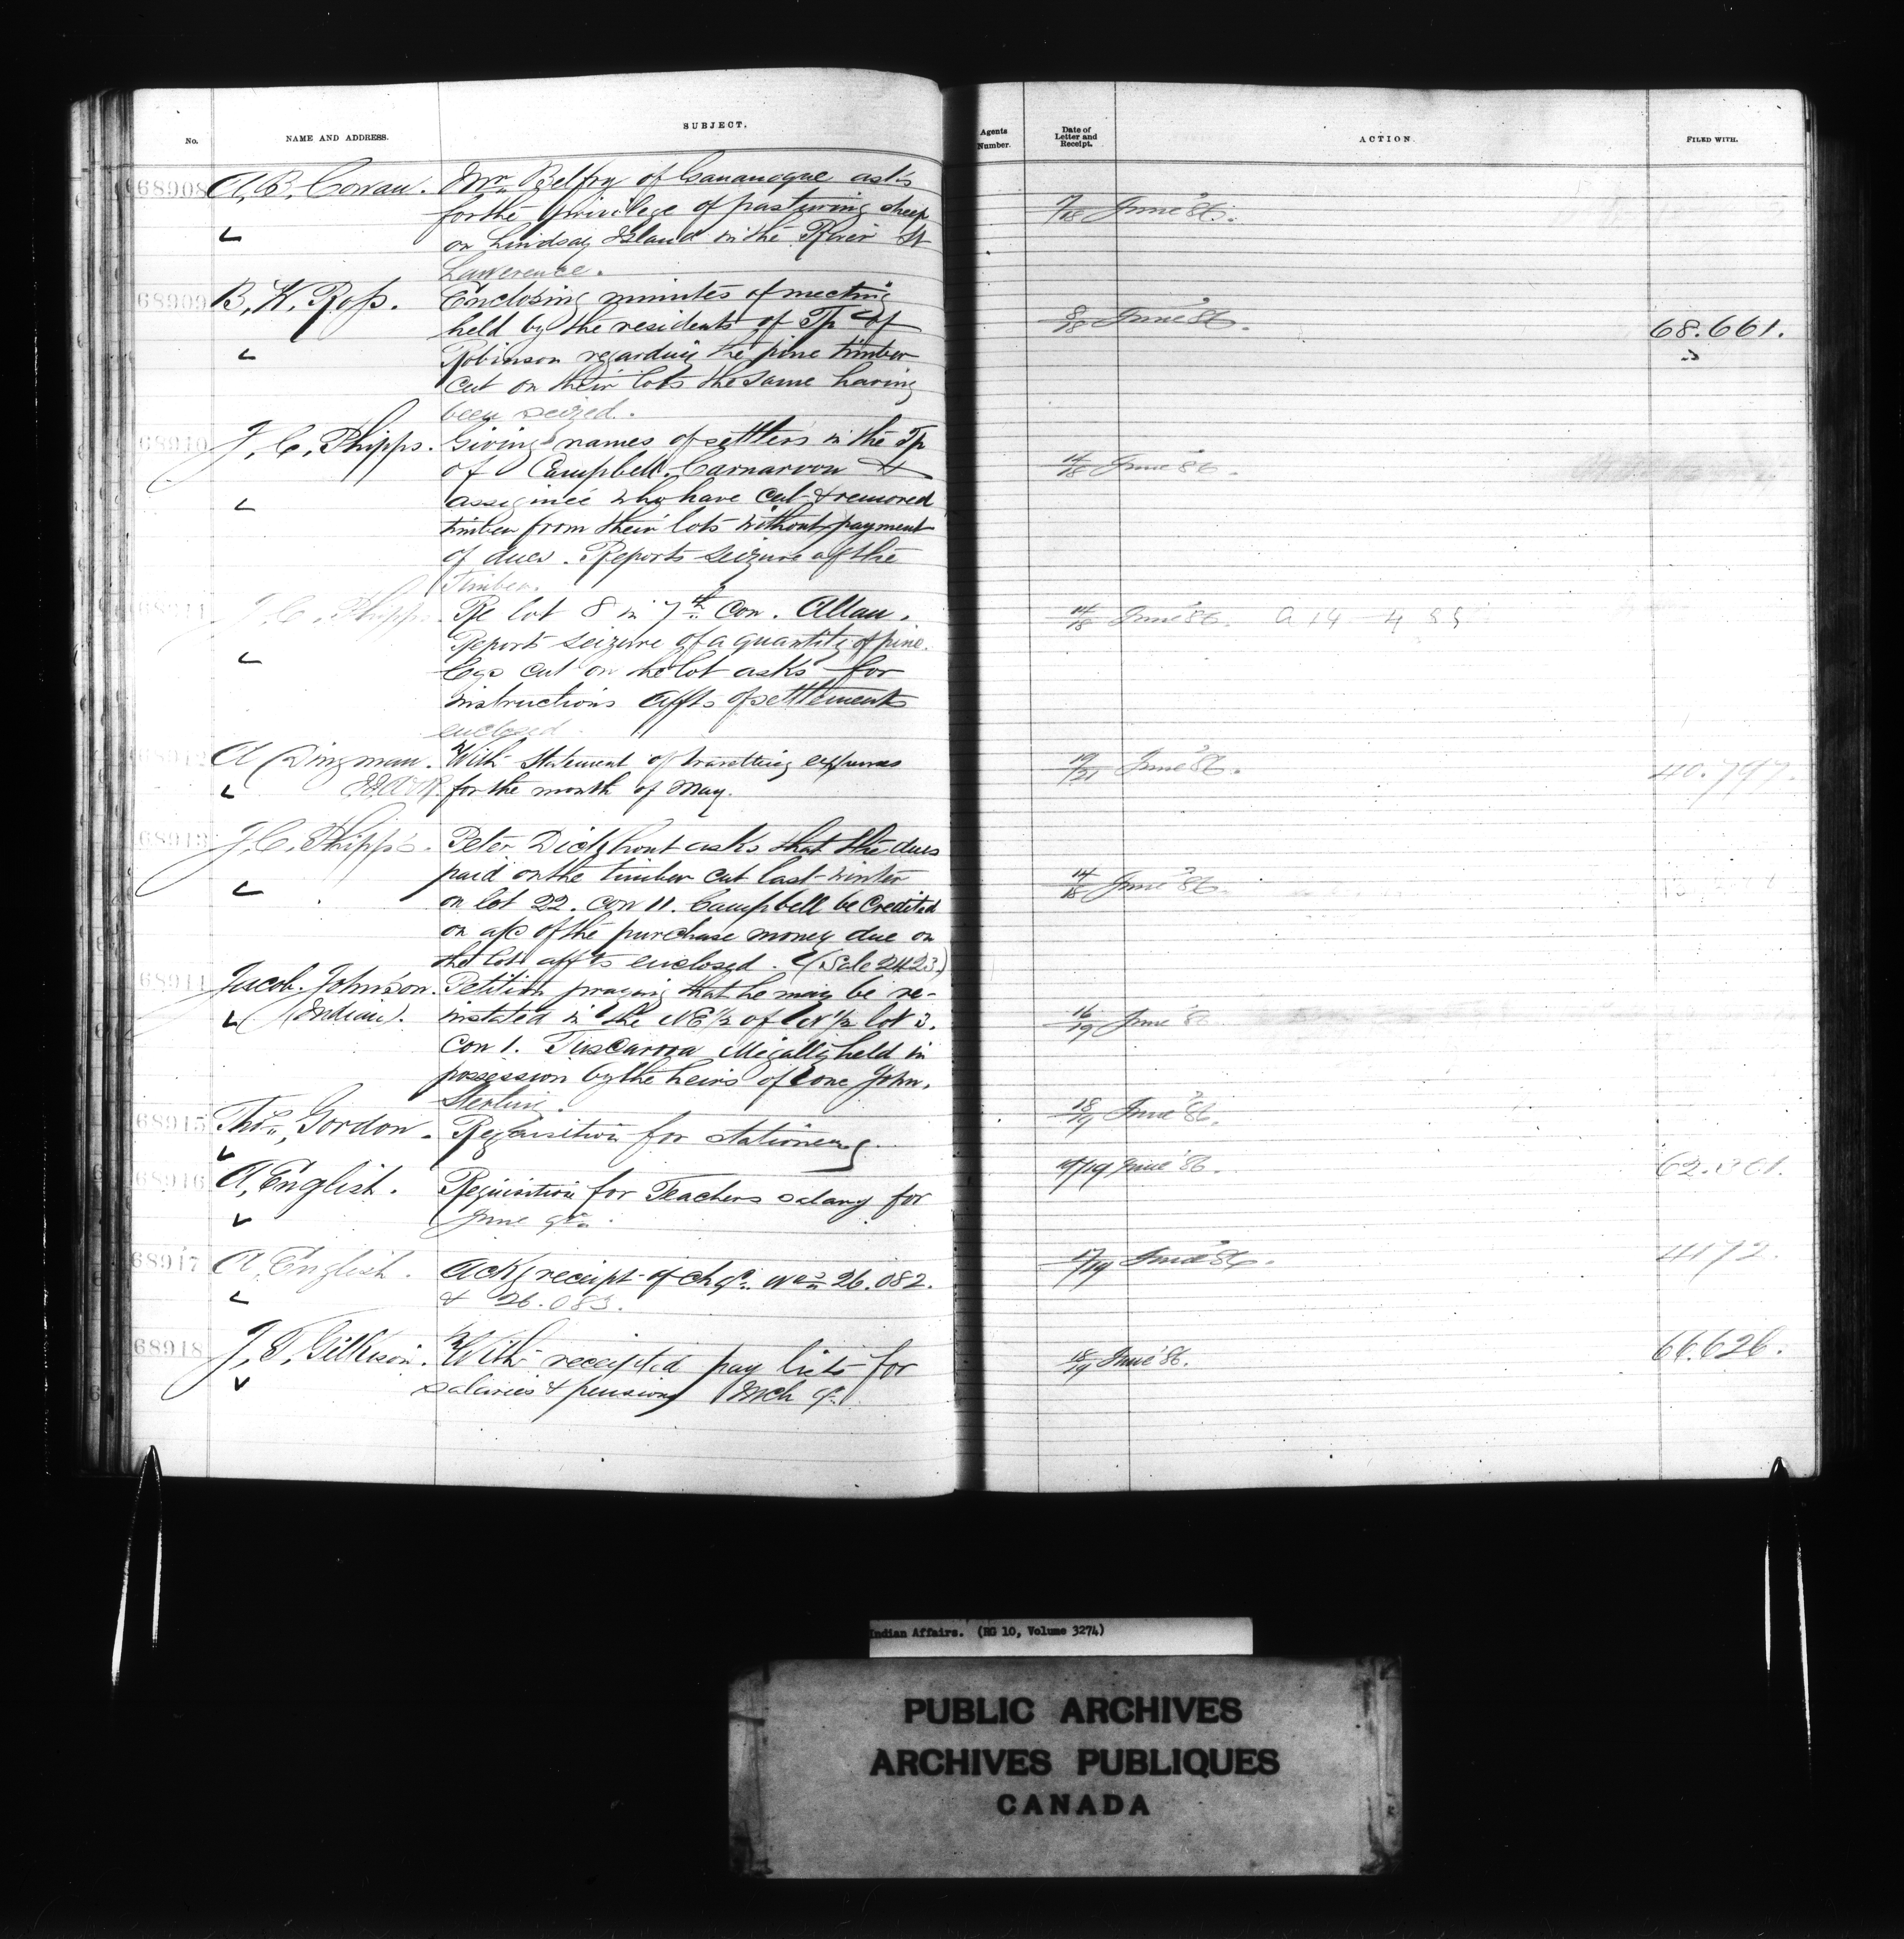 No. NAME AND ADDRESS. SUBJECT. Agents Number. Date of Letter and Receipt. ACTION. FILED WITH.
68908 A. B. Cowan. Mr. Belfry of Gananoque asks
for the privilege of pasturing sheep 7/18 June '86.
on Lindsay Island in the River St
Lawerence.
68909 B. W. Ross. Enclosing minutes of meeting
held by the residents of Tp of 8/18 June '86. 68.661.
Robinson regarding the pine timber
cut on their lots the same having
been seized.
68910 J. C. Phipps. Giving names of settlers in the Tp
of Campbell, Carnarvon & 14/18 June '86.
who have cut & removed
timber from their lots without payment
of dues. Reports seizure of the
Timber.
68911 J. C. Phipps. Re lot 8 in 7th Con. Allan. 14/18 June '86.
Reports seizure of a quantity of pine
logs cut on the lot asks for
instructions affts of settlements
enclosed.
68912 A Dingman. With statement of travelling expenses 19/21 June '86. 40.797.
for the month of May.
68913 J. C. Phipps. Peter Dickhout asks that the dues
paid on the timber cut last winter 14/18 June '86.
on lot 22. con 11. Campbell be Credited
on a/c of the purchase money due on
the lot affts enclosed. (Sale 2423)
68914 Jacob. Johnson. Petition praying that he may be re-
(Indian). instated in the NE 1/2 of N 1/2 lot 3. 16/19 June '86
Con 1. Tuscarora illegally held in
possession by the heirs of one John.
Sterling.
68915 Thos. Gordon. Requisition for stationery. 18/19 June '86.
68916 A. English. Requisition for Teachers salary for /19 June '86.
June qr.
68917 A. English. Ackg receipt of chqs. Nos 26.082. 17/19 June '86. 4172.
& 26.083.
68918 J. T. Gilkison. With receipted pay lists for 18/19 June '86. 66.626.
salaries & pensions Mch qr.
Indian Affairs. (RG 10, Volume 3274)
PUBLIC ARCHIVES
ARCHIVES PUBLIQUES
CANADA